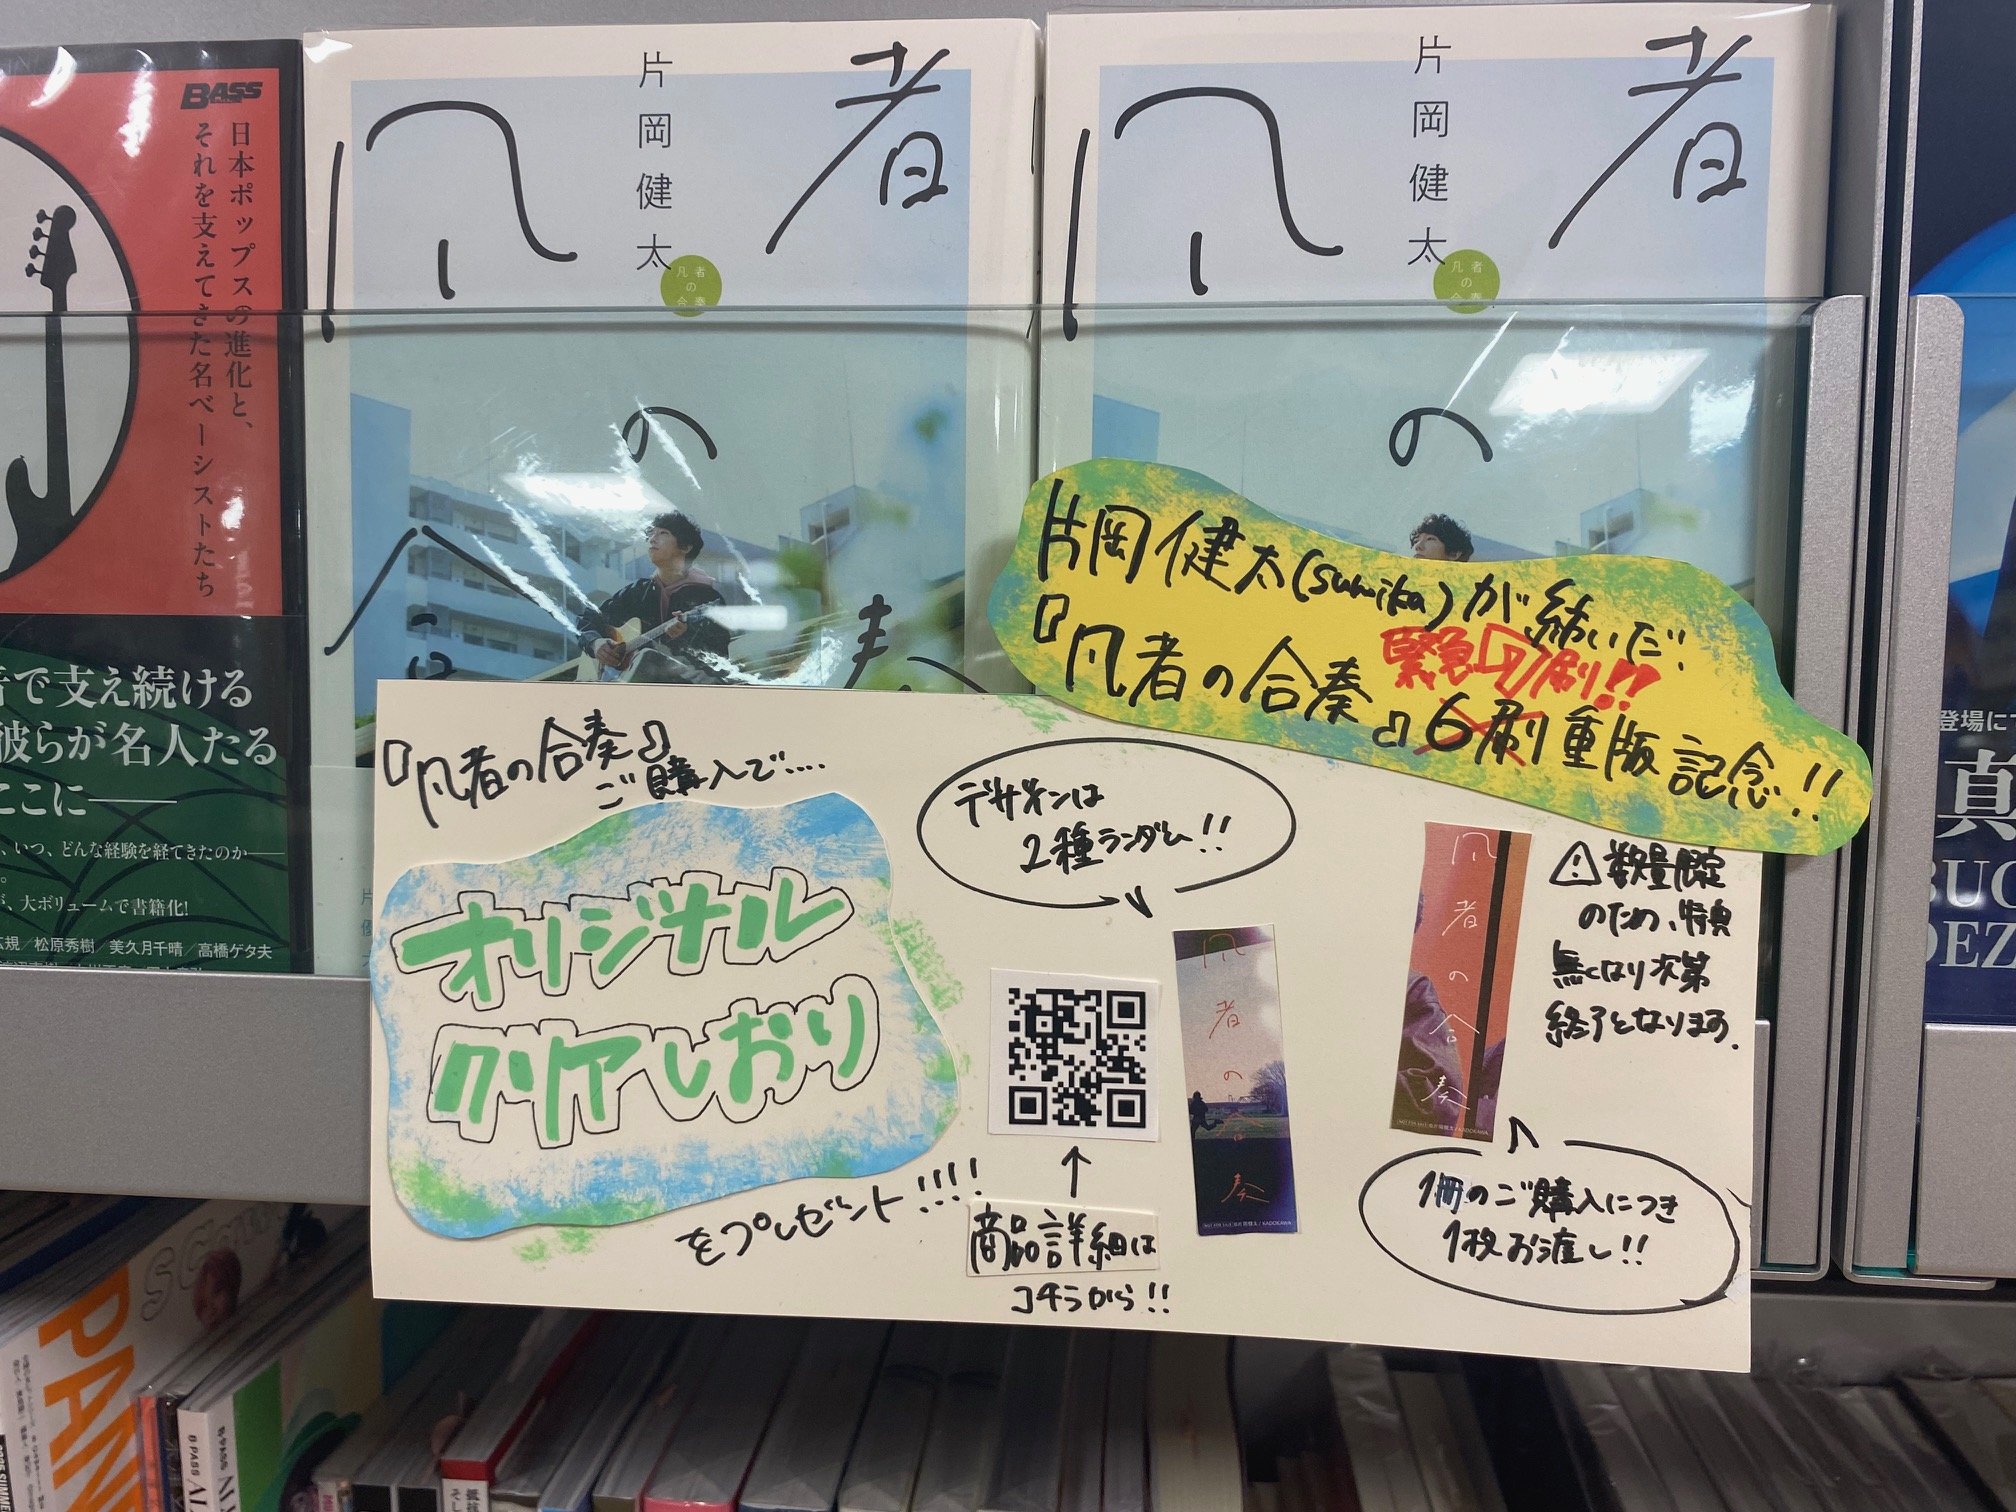 BASS
日本ポップスの進化と、
それを支えてきた名ベーシストたち
音で支え続ける
彼らが名人たる
ここに——
、いつ、どんな経験を経てきたのか——
が、大ボリュームで書籍化!
広規/松原秀樹/美久月千晴/高橋ゲタ夫
凡者の合奏
片岡健太
凡者
の
合奏
凡者の
片岡健太
凡者
の
合奏
片岡健太(sumika)が紡いだ
『凡者の合奏』緊急7刷!!
6刷重版記念!!
『凡者の合奏』
ご購入で....
オリジナル
クリアしおり
をプレゼント!!!!
デザインは
2種ランダム!!
商品詳細は
コチラから!!
凡者の合奏
片岡健太/KADOKAWA
凡者の合奏
片岡健太/KADOKAWA
⚠数量限定
のため、特典
無くなり次第
終了となります.
1冊のご購入につき
1枚お渡し!!
登場に
真
BUC
DEZ
PAN